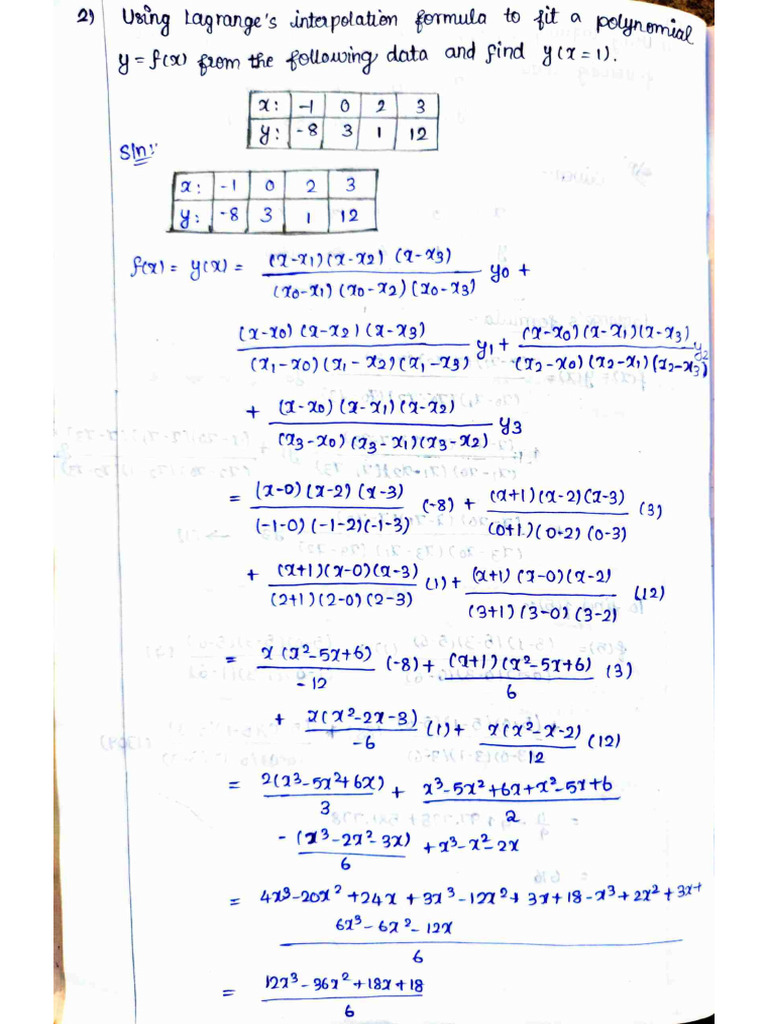 2) Using Lagrange's interpolation formula to fit a polynomial
y = f(x) from the following data and find y(x=1).
x: -1 0 2 3
y: -8 3 1 12
Sln:-
x: -1 0 2 3
y: -8 3 1 12
f(x) = y(x) = (x-x1)(x-x2)(x-x3) / (x0-x1)(x0-x2)(x0-x3) y0 +
(x-x0)(x-x2)(x-x3) / (x1-x0)(x1-x2)(x1-x3) y1 + (x-x0)(x-x1)(x-x3) / (x2-x0)(x2-x1)(x2-x3) y2
+ (x-x0)(x-x1)(x-x2) / (x3-x0)(x3-x1)(x3-x2) y3
= (x-0)(x-2)(x-3) / (-1-0)(-1-2)(-1-3) (-8) + (x+1)(x-2)(x-3) / (0+1)(0-2)(0-3) (3)
+ (x+1)(x-0)(x-3) / (2+1)(2-0)(2-3) (1) + (x+1)(x-0)(x-2) / (3+1)(3-0)(3-2) (12)
= x(x²-5x+6) / -12 (-8) + (x+1)(x²-5x+6) / 6 (3)
+ x(x²-2x-3) / -6 (1) + x(x²-x-2) / 12 (12)
= 2(x³-5x²+6x) / 3 + x³-5x²+6x+x²-5x+6 / 2
- (x³-2x²-3x) / 6 + x³-x²-2x
= 4x³-20x²+24x+3x³-12x²+3x+18-x³+2x²+3x+
6x³-6x²-12x
6
= 12x³-36x²+18x+18 / 6